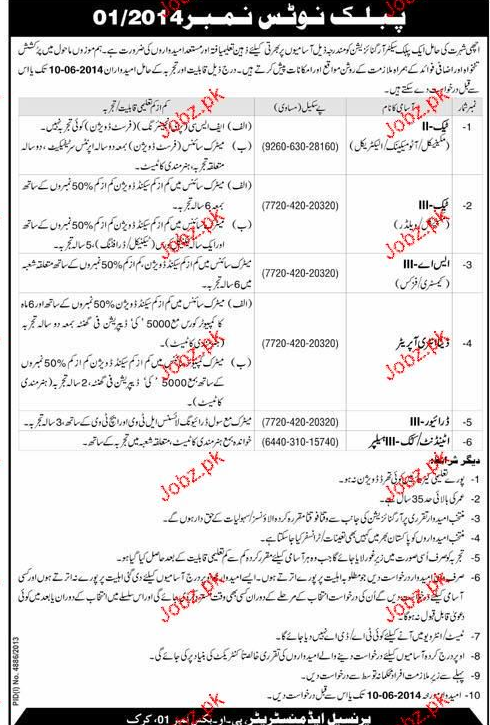 پبلک نوٹس نمبر 01/2014
اچھی شہرت کی حامل ایک پبلک سیکٹر آرگنائزیشن کو مندرجہ ذیل آسامیوں پر بھرتی کیلئے ذہین تعلیم یافتہ اور مستعد امیدواروں کی ضرورت ہے۔ ہم موزوں ماحول میں پرکشش
تنخواہ اور اضافی فوائد کے ہمراہ ملازمت کے روشن مواقع اور امکانات پیش کرتے ہیں۔ درج ذیل قابلیت اور تجربہ کے حامل امیدواران 10-06-2014 تک یا اس
سے قبل درخواست دے سکتے ہیں۔
نمبر شمار آسامی کا نام پے سکیل (مساوی) کم از کم تعلیمی قابلیت/تجربہ
1- ٹیک-II (مکینیکل/آٹومیکینک/الیکٹریکل) (9260-630-28160) (الف) ایف ایس سی (فرسٹ ڈویژن) کوئی تجربہ نہیں۔
(ب) میٹرک سائنس (فرسٹ ڈویژن) بمعہ دو سالہ اپرنٹس سرٹیفکیٹ، دو سالہ
متعلقہ تجربہ، ہنرمندی کا ٹیسٹ۔
2- ٹیک-III ویلڈر) (7720-420-20320) (الف) میٹرک سائنس میں کم از کم سیکنڈ ڈویژن کم از کم 50% نمبروں کے ساتھ
بمعہ 6 سالہ تجربہ۔
(ب) میٹرک سائنس میں کم از کم سیکنڈ ڈویژن کم از کم 50% نمبروں کے ساتھ
اور ایک سالہ (ٹیکنیکل/ڈرافٹنگ)، 5 سالہ تجربہ۔
3- ایس اے-III (کیمسٹری/فزکس) (7720-420-20320) میٹرک سائنس میں کم از کم سیکنڈ ڈویژن، کم از کم 50% نمبروں کے ساتھ متعلقہ شعبہ میں
تجربے کے ساتھ۔
4- ڈیٹا انٹری آپریٹر (7720-420-20320) (الف) میٹرک سائنس میں کم از کم سیکنڈ ڈویژن 50% نمبروں کے ساتھ اور 6 ماہ
کا کمپیوٹر کورس مع 5000 'کی' ڈیپریشن فی گھنٹہ بمعہ دو سالہ تجربہ
ٹیسٹ)۔
(ب) میٹرک کمپیوٹر سائنس میں کم از کم سیکنڈ ڈویژن کم از کم 50% نمبروں
کے ساتھ بمع 5000 'کی' ڈیپریشن فی گھنٹہ، 2 سالہ تجربہ (ہنرمندی
کا ٹیسٹ)۔
5- ڈرائیور-III (7720-420-20320) میٹرک مع سول ڈرائیونگ لائسنس ایل ٹی وی اور ایچ ٹی وی کے ساتھ، 3 سالہ تجربہ۔
6- اٹینڈنٹ/کک-III ہیلپر (6440-310-15740) خواندہ بمع ہنرمندی کا ٹیسٹ، متعلقہ شعبہ میں تجربہ کے ساتھ۔
دیگر شرائط:
1- پورے تعلیمی کیریئر میں کوئی تھرڈ ڈویژن نہ ہو۔
2- عمر کی بالائی حد 35 سال ہے۔
3- منتخب امیدوار تقرری پر آرگنائزیشن کی جانب سے وقتاً فوقتاً مقرر کردہ الاؤنسز/سہولیات کے حق دار ہوں گے۔
4- منتخب امیدواروں کو پاکستان بھر میں کہیں بھی تعینات/ٹرانسفر کیا جا سکتا ہے۔
5- تجربہ کو صرف اسی صورت میں زیر غور لایا جائے گا جب وہ ہر آسامی کیلئے مقرر کردہ کم سے کم تعلیمی قابلیت کے بعد حاصل کیا گیا ہو۔
6- صرف وہی امیدوار درخواست دیں جو مطلوبہ اہلیت پر پورے اترتے ہوں۔ ایسے امیدوار جو درج آسامیوں کیلئے دی گئی اہلیت پر پورے نہ اترتے ہوں اور کسی
آسامی کیلئے درخواست دیں گے ان کی درخواست انتخاب کے مرحلے کے دوران کسی بھی وقت مسترد کر دی جائے گی اور اس سلسلے میں انتخاب کے دوران یا بعد میں کوئی
دعویٰ قابل قبول نہ ہوگا۔
7- ٹیسٹ/انٹرویو میں آنے کیلئے کوئی ٹی اے/ڈی اے نہیں دیا جائے گا۔
8- اوپر درج کردہ آسامیوں کیلئے درخواست دینے والے امیدواروں کی تقرری خالصتاً کنٹریکٹ کی بنیاد پر کی جائے گی۔
9- پہلے سے زیر ملازمت افراد محکمانہ توسط سے درخواست دیں۔
10- امیدوار مورخہ 10-06-2014 تک یا اس سے قبل درخواست دیں۔
پرنسپل ایڈمنسٹریٹر پی۔ او۔ بکس نمبر 01، کرک
PID(I) No. 4886/2013
Jobz.pk
Jobz.pk
Jobz.pk
Jobz.pk
Jobz.pk
Jobz.pk
Jobz.pk
Jobz.pk
Jobz.pk